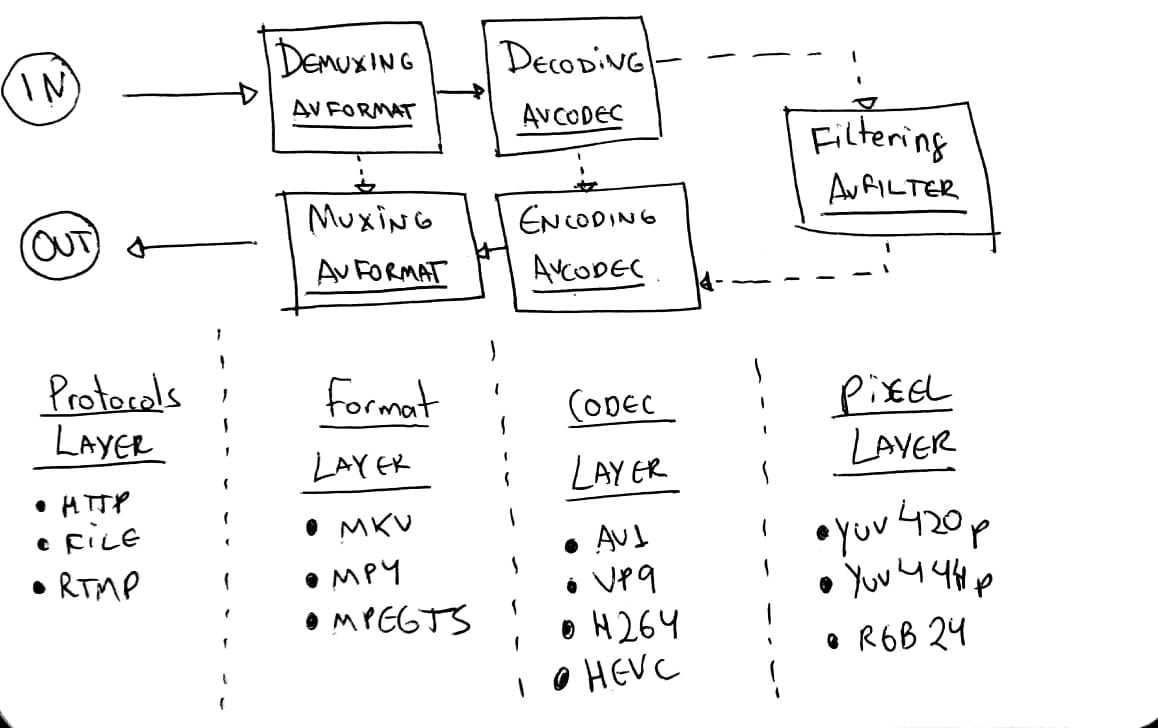 IN
DEMUXING
AVFORMAT
DECODING
AVCODEC
Filtering
AVFILTER
OUT
MUXING
AVFORMAT
ENCODING
AVCODEC
Protocols
LAYER
• HTTP
• FILE
• RTMP
Format
LAYER
• MKV
• MP4
• MPEGTS
CODEC
LAYER
• AV1
• VP9
• H264
• HEVC
PIXEL
LAYER
• YUV420p
• YUV444p
• RGB24